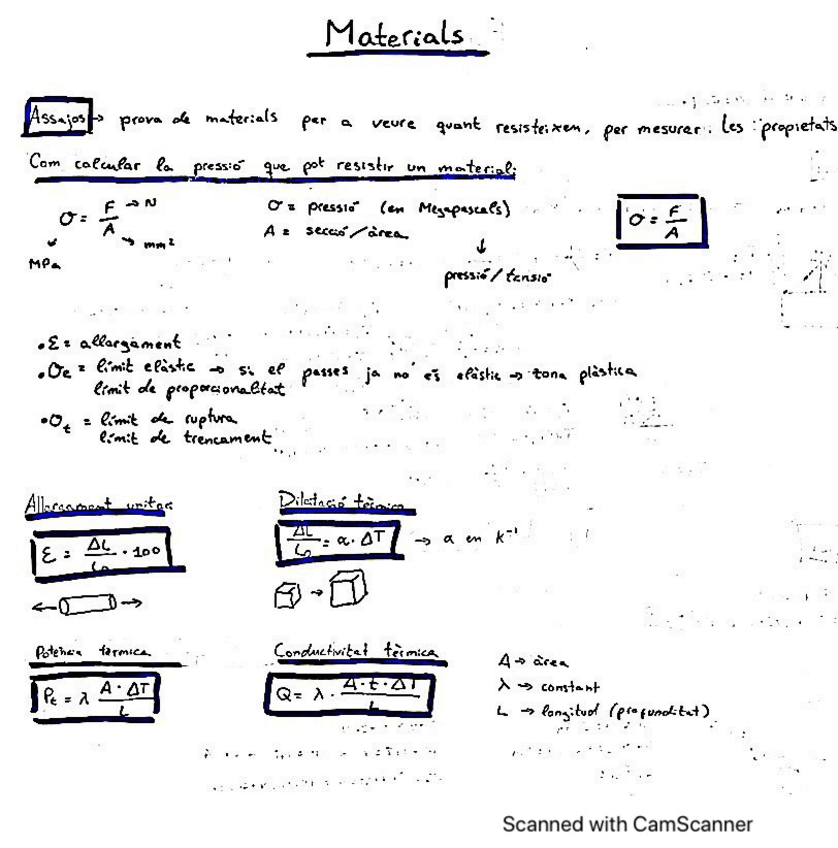 Materials
Assajos → prova de materials per a veure quant resisteixen, per mesurar les propietats
Com calcular la pressió que pot resistir un material:
σ = F/A → N
→ mm²
MPa
σ = pressió (en Megapascals)
A = secció/àrea
pressió/tensió
σ = F/A
• ε = allargament
• σe = límit elàstic → si el passes ja no és elàstic → zona plàstica
límit de proporcionalitat
• σt = límit de ruptura
límit de trencament
Allargament unitari
ε = ΔL/L₀ · 100
Dilatació tèrmica
ΔL/L₀ = α · ΔT → α en K⁻¹
Potència tèrmica
Pt = λ A · ΔT/L
Conductivitat tèrmica
Q = λ · A · t · ΔT/L
A → àrea
λ → constant
L → longitud (profunditat)
Scanned with CamScanner